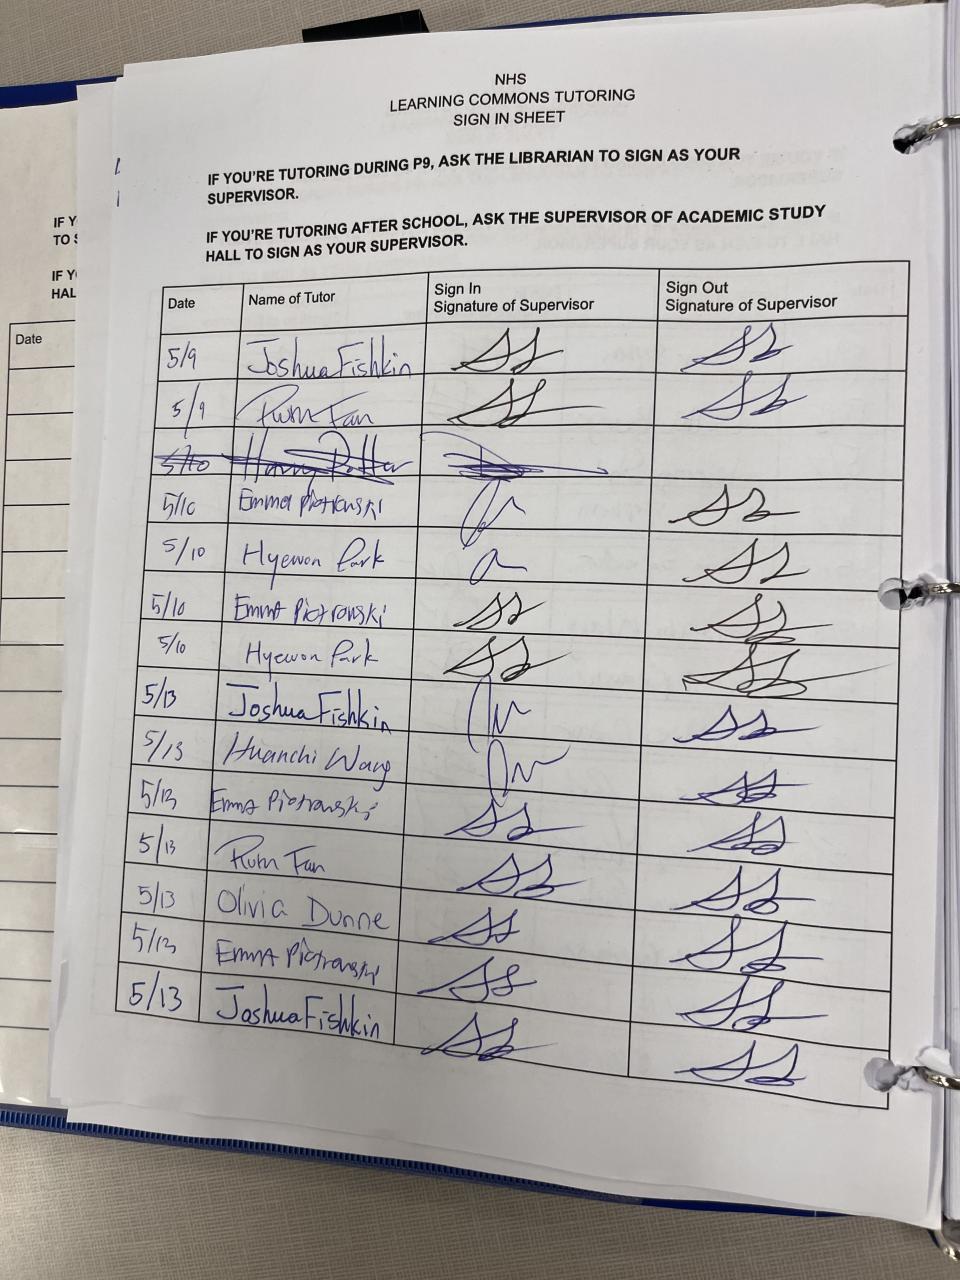 NHS
LEARNING COMMONS TUTORING
SIGN IN SHEET
IF YOU'RE TUTORING DURING P9, ASK THE LIBRARIAN TO SIGN AS YOUR
SUPERVISOR.
IF YOU'RE TUTORING AFTER SCHOOL, ASK THE SUPERVISOR OF ACADEMIC STUDY
HALL TO SIGN AS YOUR SUPERVISOR.
IF Y
TO S
IF Y
HAL
Date
Date Name of Tutor Sign In Signature of Supervisor Sign Out Signature of Supervisor
5/9 Joshua Fishkin
5/9 Fan
5/10 Harry Potter
5/10 Emma Piotrowski
5/10 Hyewon Park
5/10 Emma Piotrowski
5/10 Hyewon Park
5/13 Joshua Fishkin
5/13 Huanchi Wang
5/13 Emma Piotrowski
5/13 Fan
5/13 Olivia Dunne
5/13 Emma Piotrowski
5/13 Joshua Fishkin